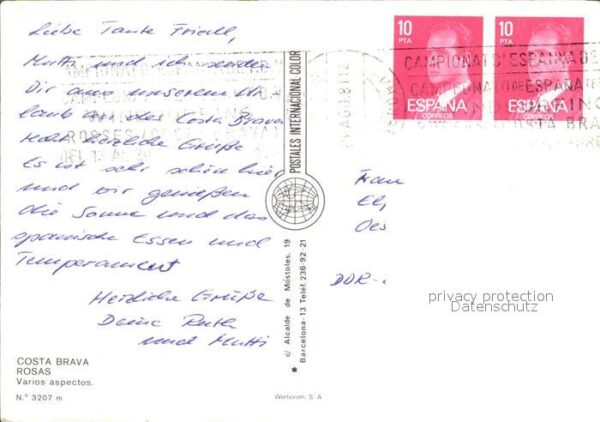 Liebe Tante Friedl,
Mutti und ich senden
Dir aus unserem Ur-
laub an der Costa Brava
herzliche Grüße
Es ist sehr schön hier
und wir genießen
die Sonne und das
spanische Essen und
Temperament
Herzliche Grüße
Deine Ruth
und Mutti
COSTA BRAVA
ROSAS
Varios aspectos.
N.° 3207 m
POSTALES INTERNACIONAL COLOR
c/ Alcalde de Móstoles, 19
* Barcelona-13 Teléf. 236-92-21
10
PTA
ESPAÑA
CORREOS
10
PTA
ESPAÑA
CORREOS
CAMPIONATO D'ESPANYA DE
CAMPEONATO DE ESPAÑA DE
COSTA BRAVA
Frau
DDR-
privacy protection
Datenschutz